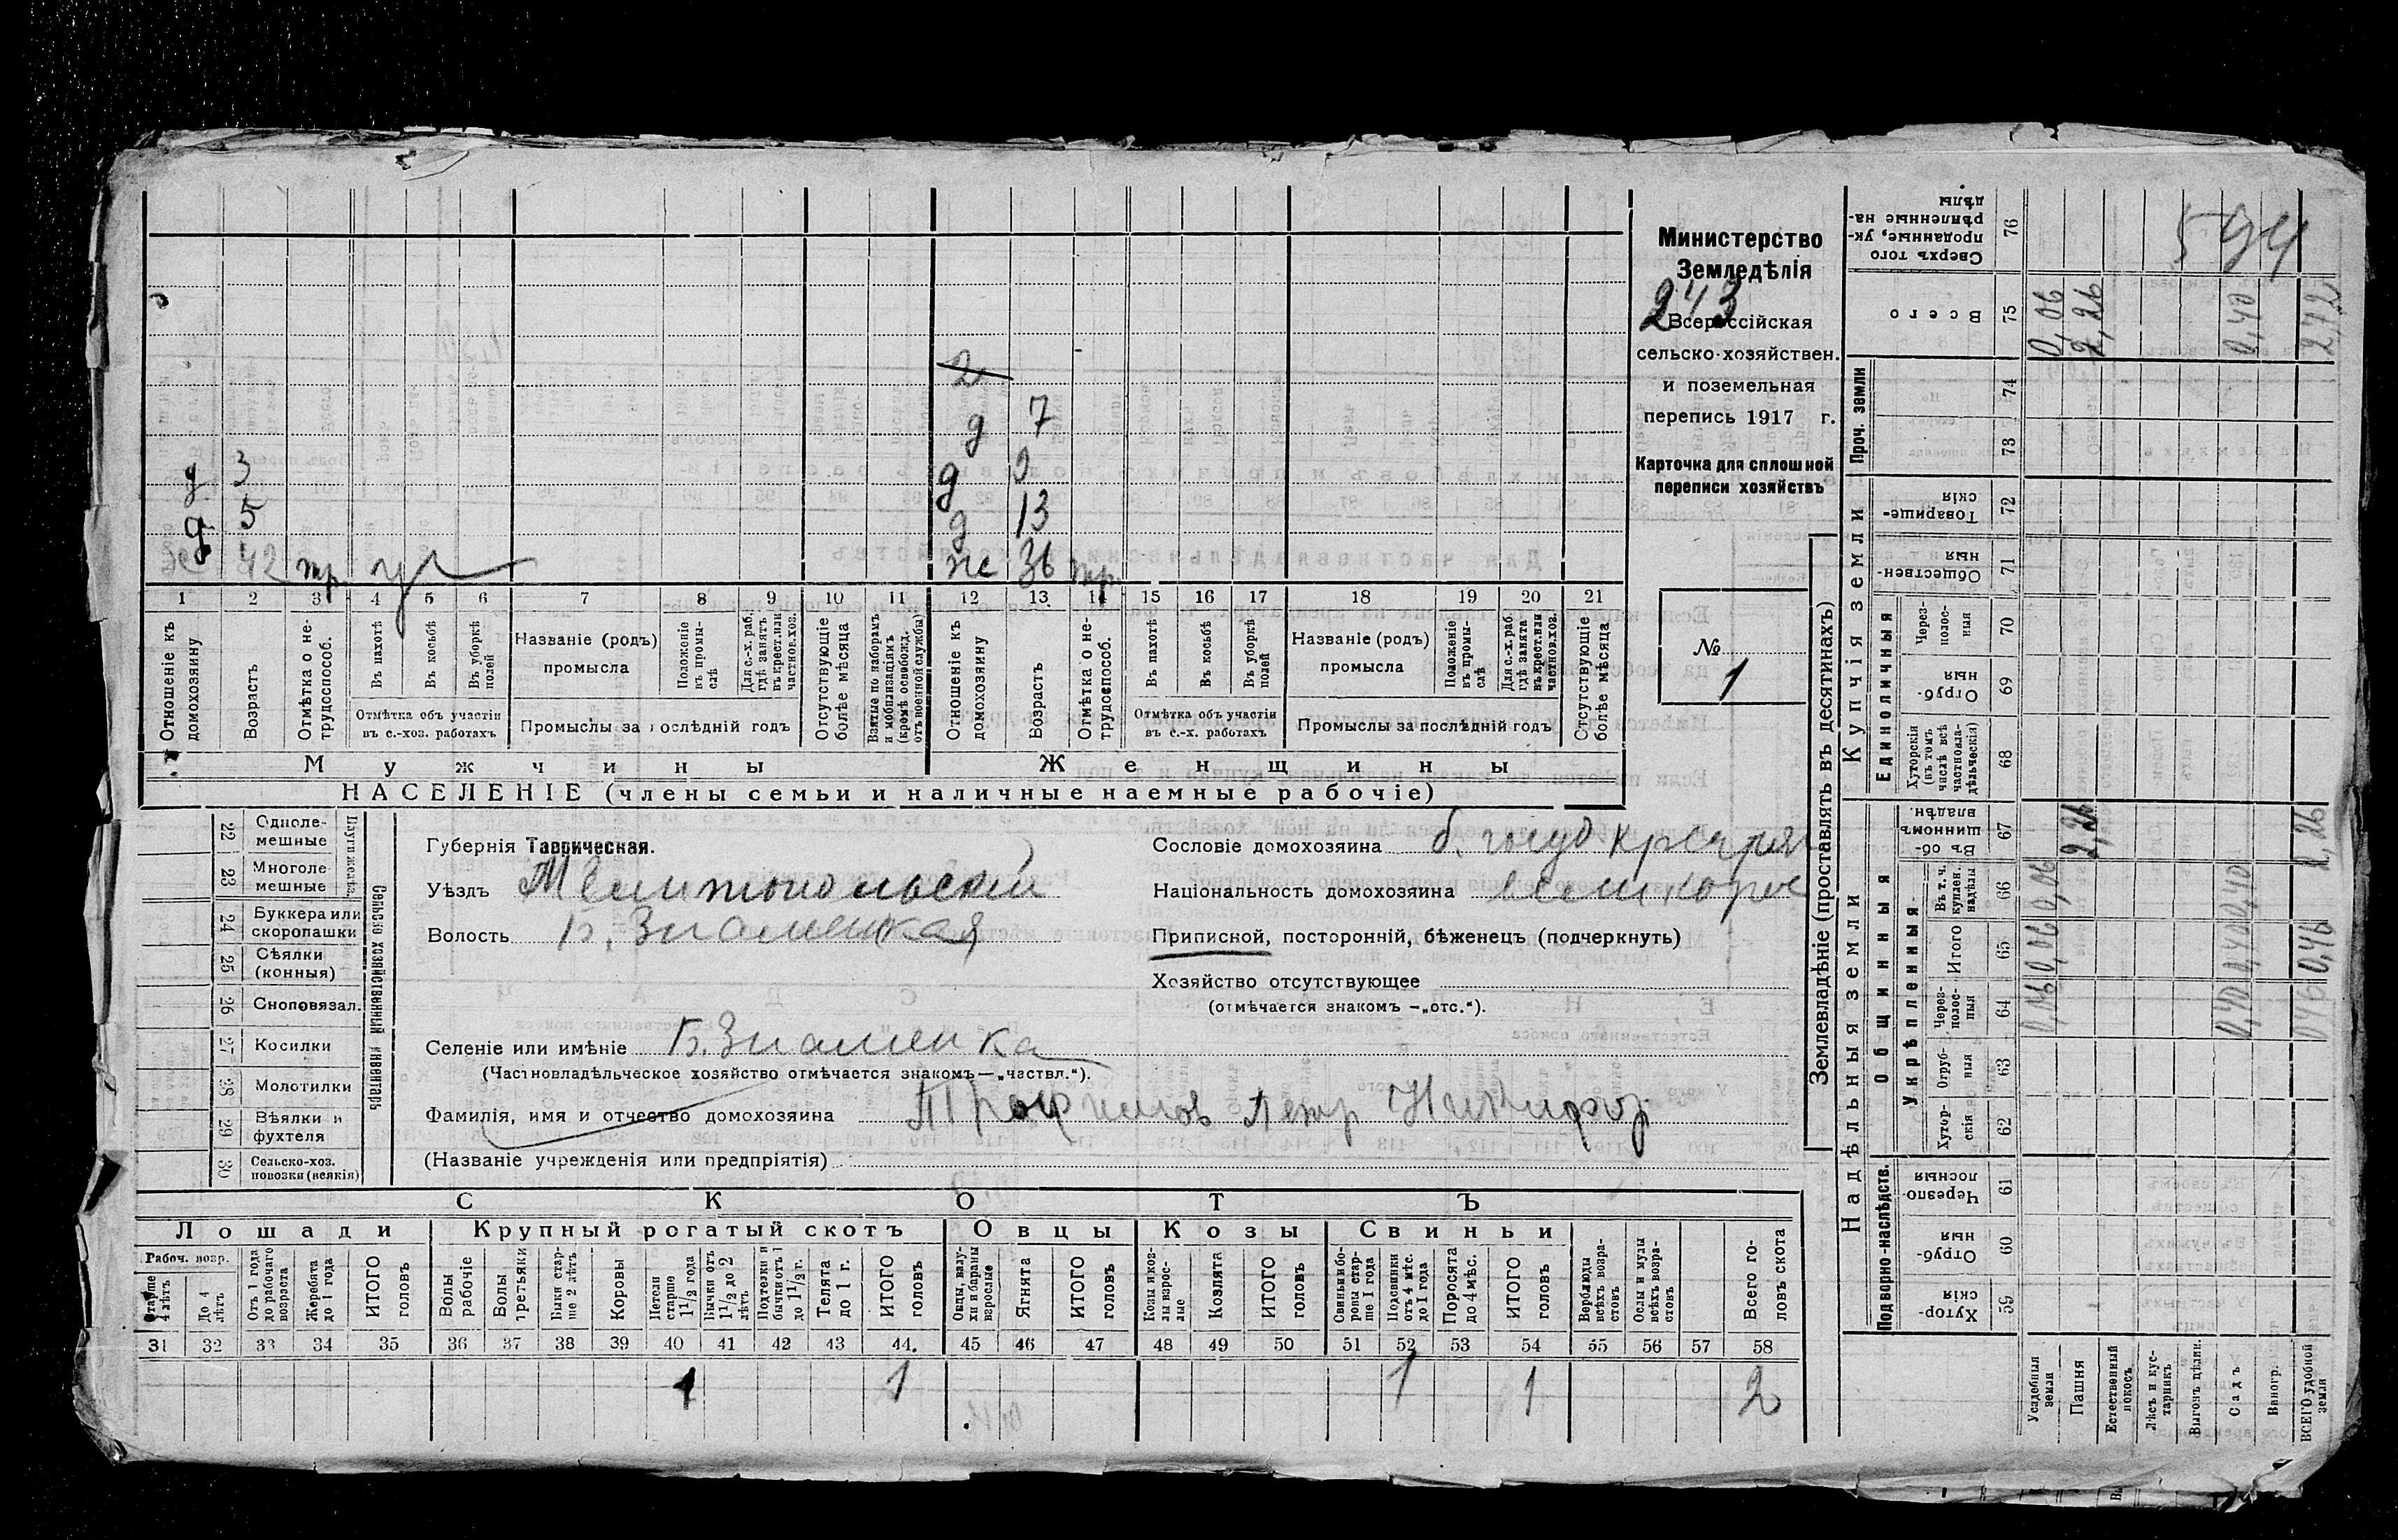 594
Министерство
Земледѣлія
243
Всероссійская
сельско-хозяйствен.
и поземельная
перепись 1917 г.
Карточка для сплошной
переписи хозяйствъ
№
1
2
д 7
д 3 д 2
д 5 д 13
42 жс 36
1 2 3 4 5 6 7 8 9 10 11 12 13 14 15 16 17 18 19 20 21
Отношеніе къ домохозяину
Возрастъ
Отмѣтка о не-трудоспособ.
Въ пахотѣ
Въ косьбѣ
Въ уборкѣ полей
Отмѣтка объ участіи
въ с.-хоз. работахъ
Названіе (родъ)
промысла
Положеніе въ промы-слѣ
Для с.-х. раб. гдѣ занятъ въ крест. или частнов. хоз.
Промыслы за послѣдній годъ
Отсутствующіе болѣе мѣсяца
Взятые по наборамъ и мобилизаціямъ (кромѣ освобожд. отъ военной службы)
Отношеніе къ домохозяину
Возрастъ
Отмѣтка о не-трудоспособ.
Въ пахотѣ
Въ косьбѣ
Въ уборкѣ полей
Отмѣтка объ участіи
въ с.-х. работахъ
Названіе (родъ)
промысла
Положеніе въ промы-слѣ
Для с.-х. раб. гдѣ занята въ крест. или частнов. хоз.
Промыслы за послѣдній годъ
Отсутствующіе болѣе мѣсяца
Мужчины Женщины
НАСЕЛЕНІЕ (члены семьи и наличные наемные рабочіе)
Сельско хозяйственный инвентарь
22 Одноле-мешные
23 Многоле-мешные
24 Буккера или скоропашки
25 Сѣялки (конныя)
26 Сноповязал.
27 Косилки
28 Молотилки
29 Вѣялки и фухтеля
30 Сельско-хоз. повозки (всякія)
Губернія Таврическая.
Уѣздъ Мелитопольскій
Волость Б. Знаменская
Селеніе или имѣніе Б. Знаменка
(Частновладѣльческое хозяйство отмѣчается знакомъ—„частвл.“).
Фамилія, имя и отчество домохозяина Трофимов Петр
(Названіе учрежденія или предпріятія)
Сословіе домохозяина
Національность домохозяина
Приписной, посторонній, бѣженецъ (подчеркнуть)
Хозяйство отсутствующее
(отмѣчается знакомъ —„отс.“).
СКОТЪ
Лошади Крупный рогатый скотъ Овцы Козы Свиньи
Рабоч. возр.
Старше 4 лѣтъ
До 4 лѣтъ
Отъ 1 года до рабочаго возраста
Жеребята до 1 года
ИТОГО головъ
Волы рабочіе
Волы третьяки
Быки стар-ше 2 лѣтъ
Коровы
Нетели старше 1 1/2 года
Бычки отъ 1 1/2 до 2 лѣтъ
Подтелки и бычки отъ 1 до 1 1/2 г.
Телята до 1 г.
ИТОГО головъ
Овцы, валу-хи и бараны взрослые
Ягнята
ИТОГО головъ
Козы и коз-лы взрос-лые
Козлята
ИТОГО головъ
Свиньи и бо-ровы стар-ше 1 года
Подсвинки отъ 4 мѣс. до 1 года
Поросята до 4 мѣс.
ИТОГО головъ
Верблюды всѣхъ возра-стовъ
Ослы и мулы всѣхъ возра-стовъ
Всего го-ловъ скота
31 32 33 34 35 36 37 38 39 40 41 42 43 44. 45 46 47 48 49 50 51 52 53 54 55 56 57 58
1 1 1 1 2
Землевладѣніе (проставлять въ десятинахъ)
Надѣльныя земли Купчія земли Проч. земли
Подворно-наслѣдств.
Общинныя
Укрѣпленныя
Единоличныя
59 Хутор-скія
60 Отруб-ныя
61 Черезпо-лосныя
62 Хутор-скія
63 Отруб-ныя
64 Через-полос-ныя
65 Итого
66 Въ т. ч. куплен. надѣлы
67 Въ об-щинномъ владѣн.
68 Хуторскія (въ томъ числѣ всѣ частновла-дѣльческія)
69 Отруб-ныя
70 Через-полос-ныя
71 Обществен-ныя
72 Товарище-скія
73
74
75 Всего
76 Сверхъ того проданные, ук-рѣпленные на-дѣлы
Усадебныя земли 0,06 0,06 0,06 0,06
Пашня 2,26 2,26
Естественный покосъ
Лѣсъ и кус-тарникъ
Выгонъ цѣлин.
Садъ 0,40 0,40 0,40 0,40
Виногр.
ВСЕГО удобной земли 0,46 0,46 2,26 2,72